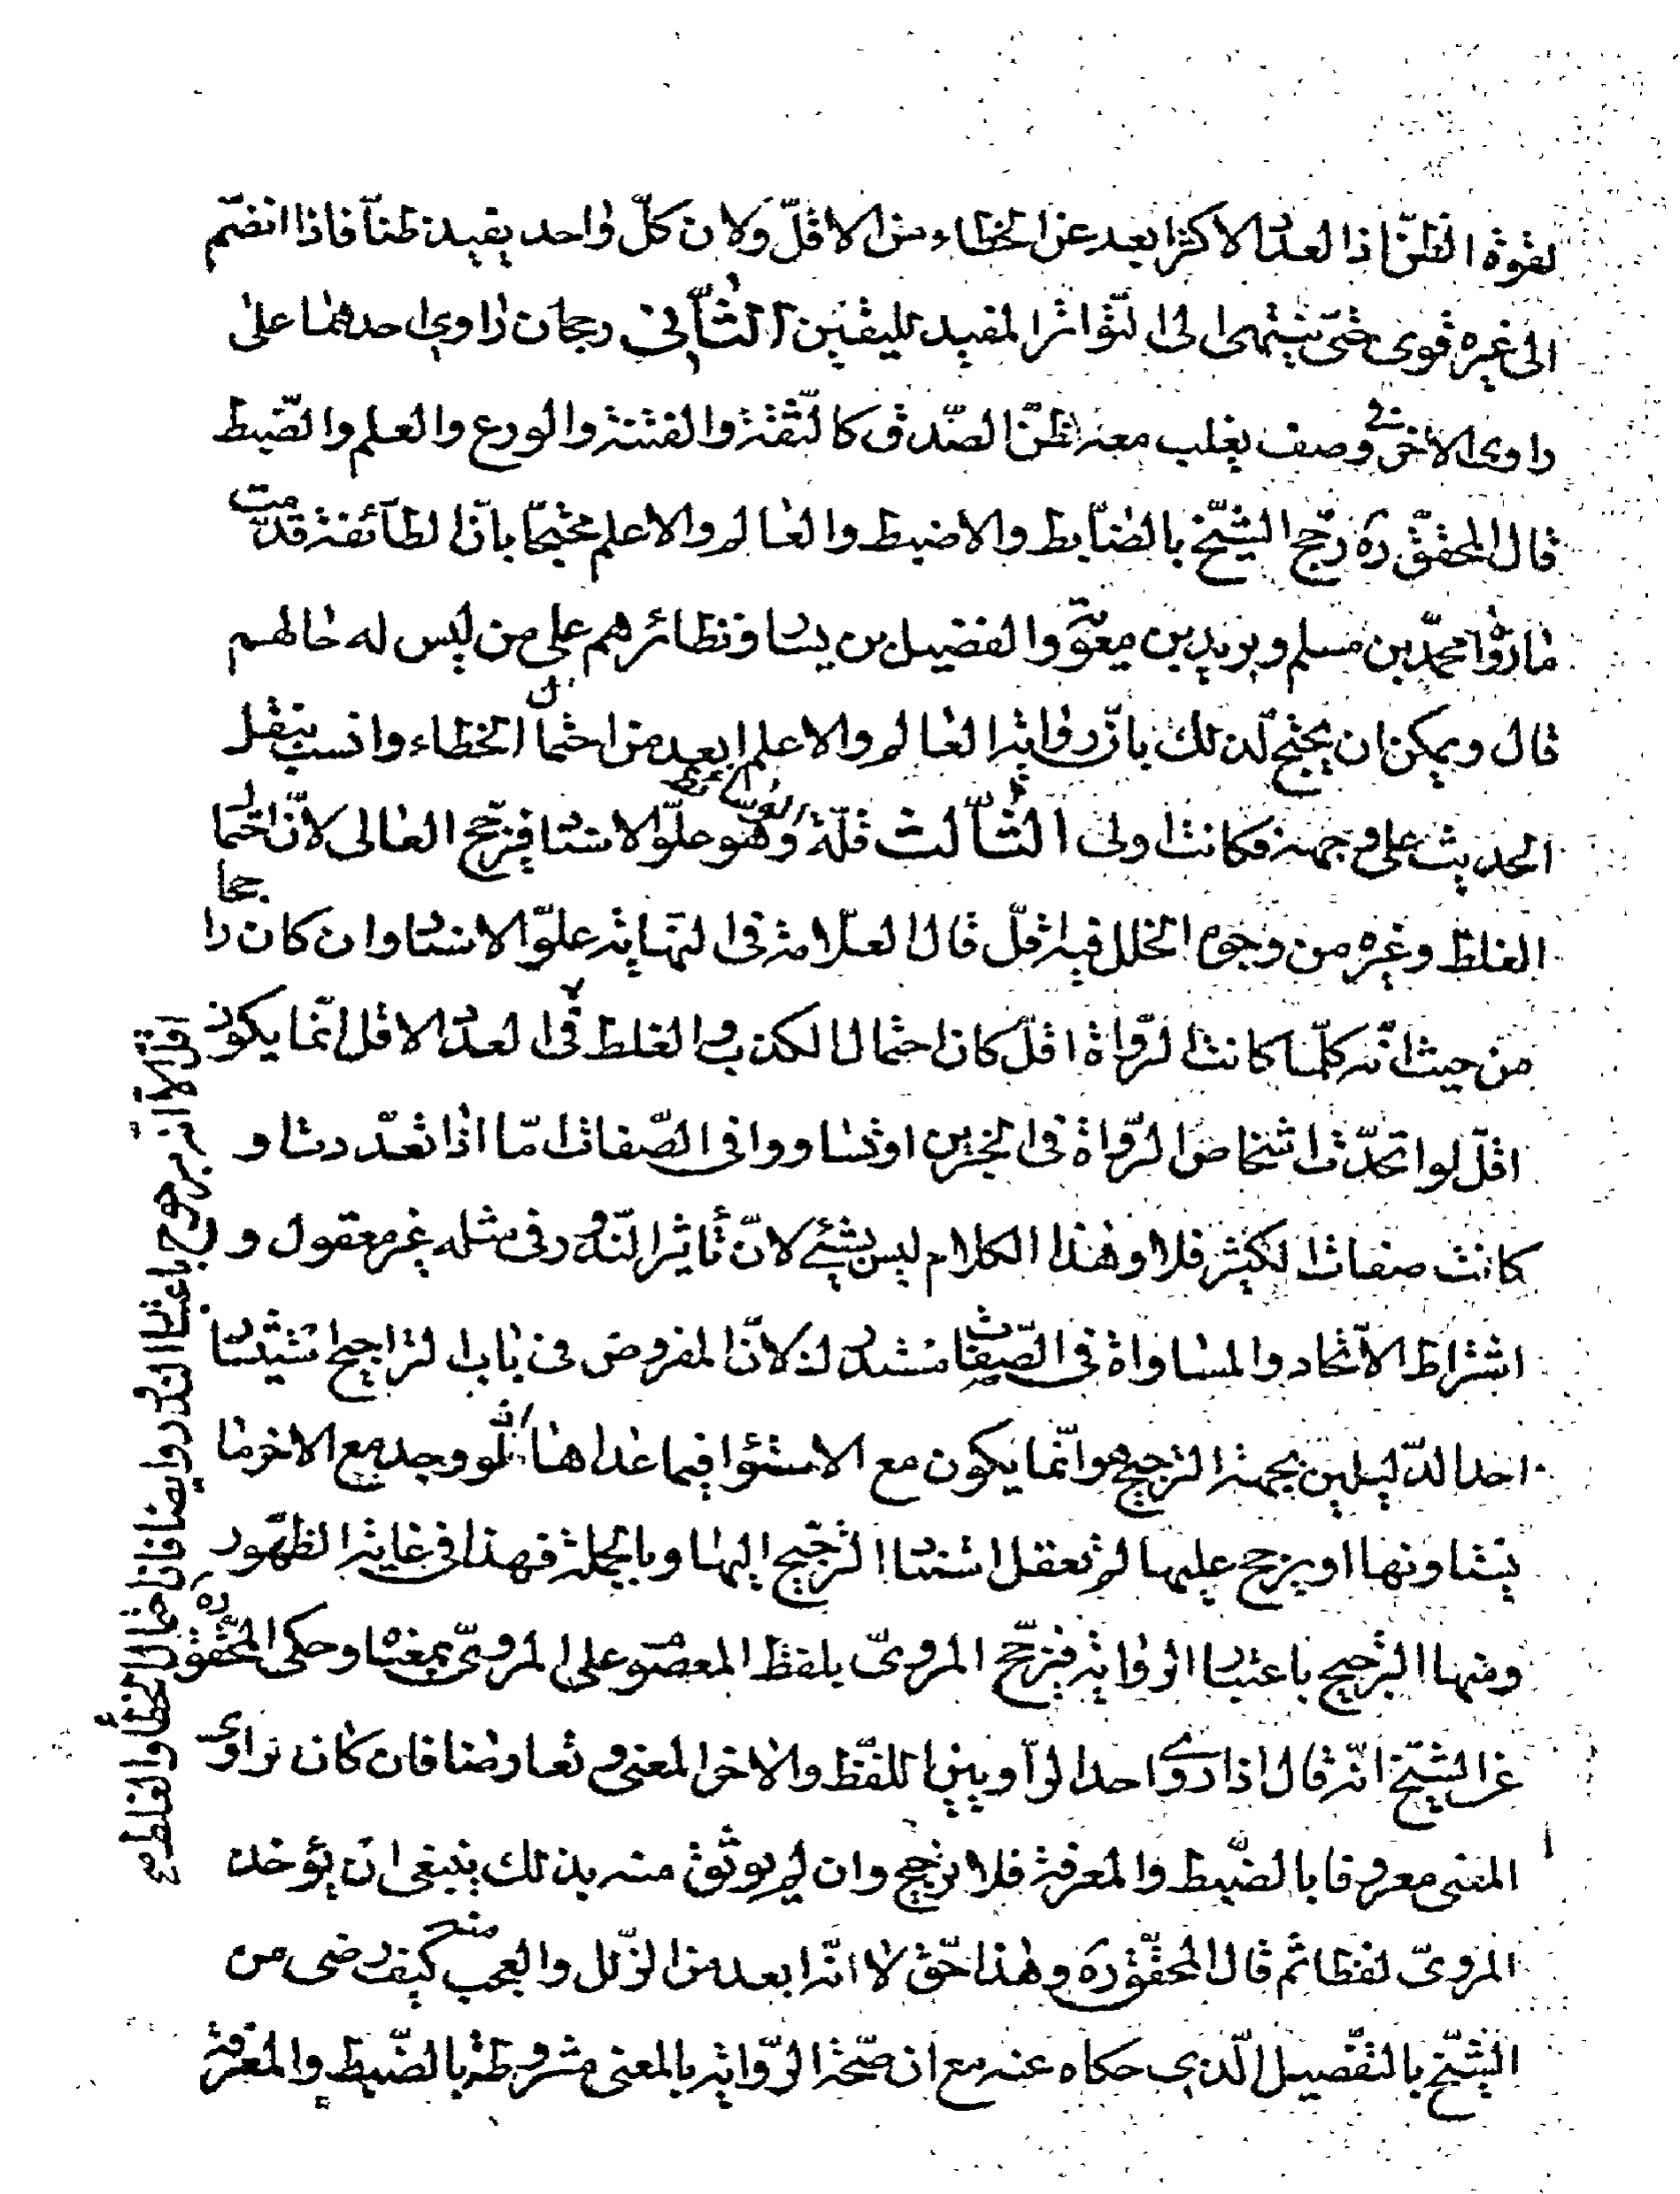 لقوة الظنّ اذ العدد الاكثر ابعد عن الخطاء من الاقلّ ولان كلّ واحد يفيد ظنّاً فاذا انضمّ
الى غيره قوى حتّى ينتهى الى التّواتر المفيد لليقين الثّانى رجحان راوى احدهما على
راوى الاخر فى وصف يغلب معه ظنّ الصّدق كالثّقة والفتنة والورع والعلم والضّبط
قال المحقّق ره رجّح الشّيخ بالضّابط والاضبط والعالم والاعلم محتجّا بانّ الطّائفة قدّمت
ما رواه محمّد بن مسلم وبريد بن معوية والفضيل بن يسار ونظائرهم على من ليس له حالهم
قال ويمكن ان يحتجّ لذلك بانّ رواية العالم والاعلم ابعد من احتمال الخطاء وانسب بنقل
الحديث على وجهه فكانت اولى الثّالث قلّة الوسائط وهو علوّ الاسناد فيرجّح العالى لانّ احتمال
الغلط وغيره من وجوه الخلل فيه اقلّ قال العلّامة فى النّهاية علوّ الاسناد وان كان راجحا
من حيث انّه كلّما كانت الرّواة اقلّ كان احتمال الكذب والغلط فى العدد الاقل انّما يكون
اقلّ لو اتّحدت اشخاص الرّواة فى الخبرين او تساووا فى الصّفات امّا اذا تعدّدت او
كانت صفات الكثير فلا وهذا الكلام ليس بشئ لانّ تأثير النّدور فى مثله غير معقول و
اشتراط الاتّحاد والمساواة فى الصّفات مستدرك لانّ المفروض فى باب التراجيح استناد
احد الدّليلين بجهة الترجيح وهو انّما يكون مع الاستواء فيما عداها اذ لو وجد مع الاخر ما
يساويها او يرجح عليها لم يعقل اسناد الترجيح اليها وبالجملة فهذا فى غاية الظهور
ومنها الترجيح باعتبار الرواية فيرجّح المروىّ بلفظ المعصوم على المروىّ بمعناه وحكى المحقق ره
عن الشّيخ انّه قال اذا روى احد الرّاويين اللّفظ والاخر المعنى وتعارضا فان كان راوى
المعنى معروفا بالضّبط والمعرفة فلا ترجيح وان لم يوثق منه بذلك ينبغى ان يؤخذ
المروىّ لفظا ثم قال المحقّق ره وهذا حقّ لانّه ابعد من الزّلل والعجب منه كيف رضى من
الشّيخ بالتفصيل الّذى حكاه عنه مع ان صحّة الرّواية بالمعنى مشروطة بالضّبط والمعرفة
اقل الّا انّه مرجوح باعتبار الندور وايضا فان احتمال الخطأ والغلط صح